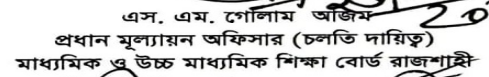 এস. এম. গোলাম আজিম
প্রধান মূল্যায়ন অফিসার (চলতি দায়িত্ব)
মাধ্যমিক ও উচ্চ মাধ্যমিক শিক্ষা বোর্ড রাজশাহী